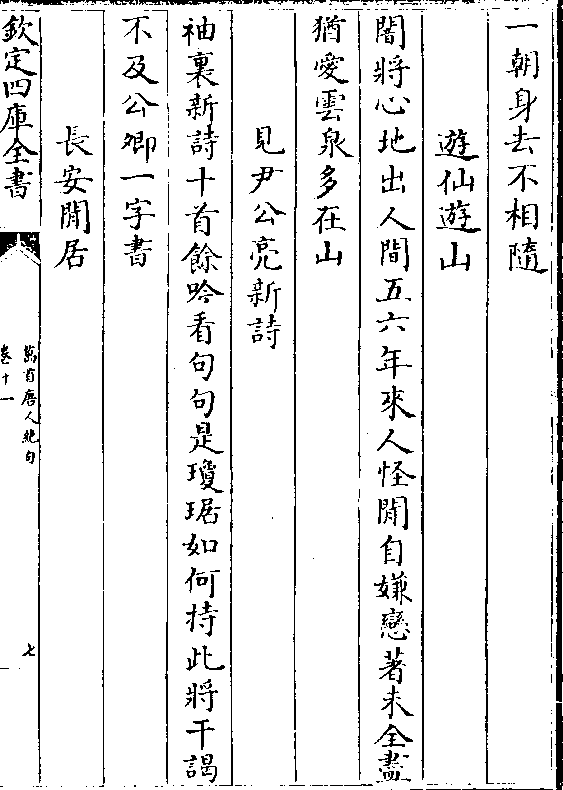 一朝身去不相隨
遊仙遊山
闇將心地出人間五六年來人怪閒自嫌戀著未全盡
猶愛雲泉多在山
見尹公亮新詩
袖裏新詩十首餘吟看句句是瓊琚如何持此將干謁
不及公卿一字書
長安閒居
欽定四庫全書
萬首唐人絶句
卷十一
七